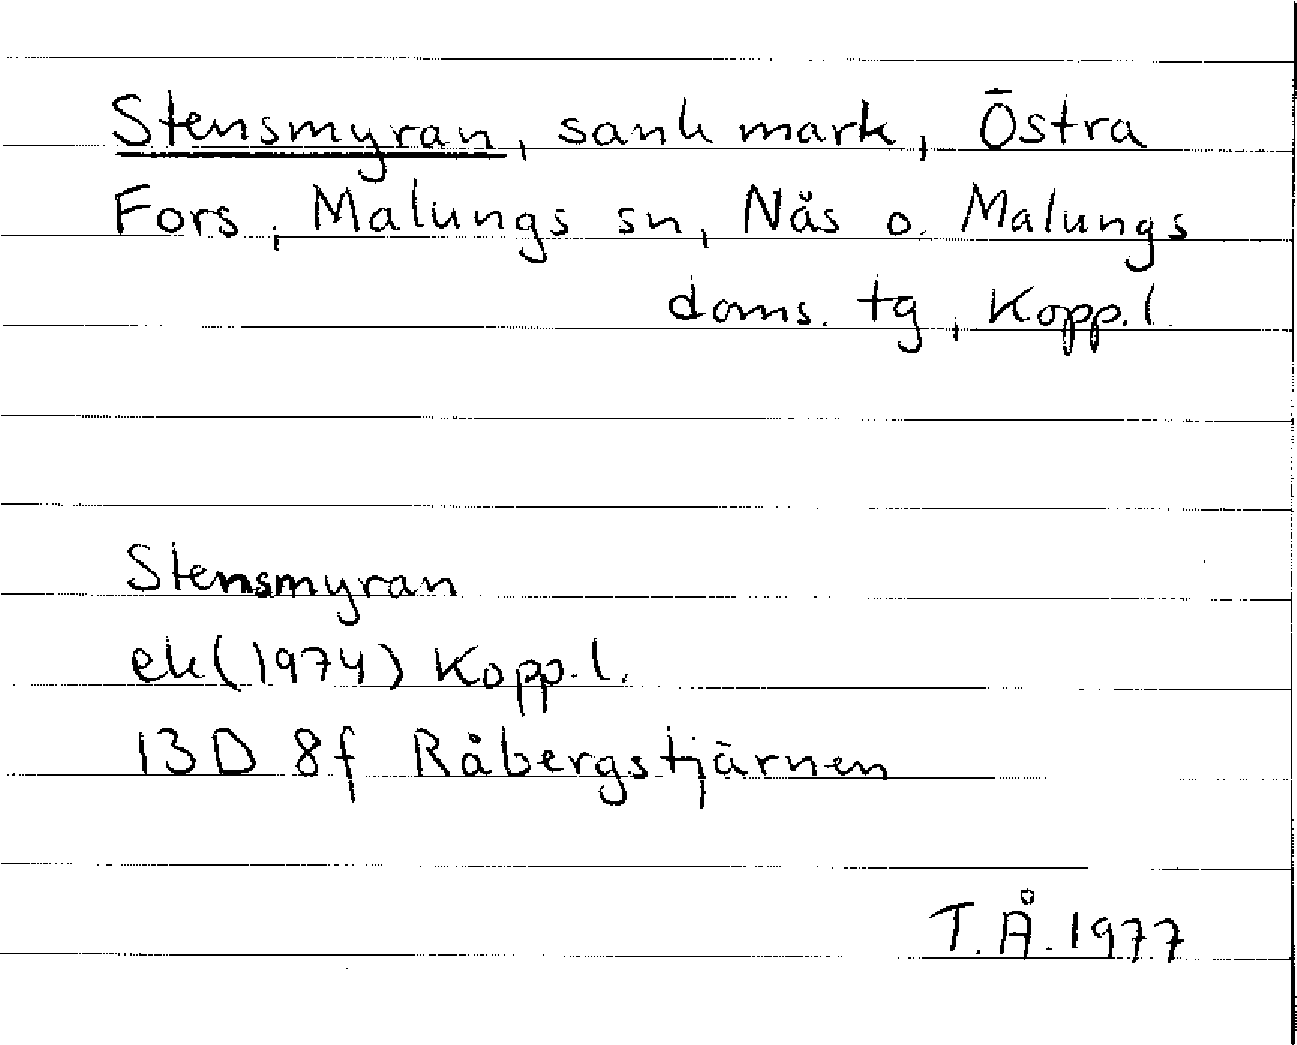 Stensmyran, sank mark, Östra
Fors, Malungs sn, Nås o. Malungs
doms. tg, Kopp. l.
Stensmyran
ek (1974) Kopp. l.
13D 8f Råbergstjärnen
T.Å. 1977